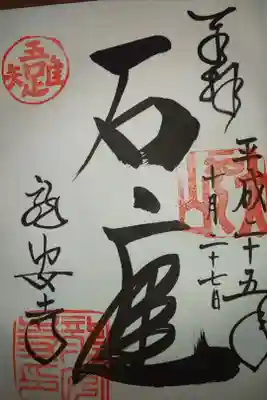 奉拝
平成二十五年
十月二十七日
石庭
吾唯足知
龍安寺